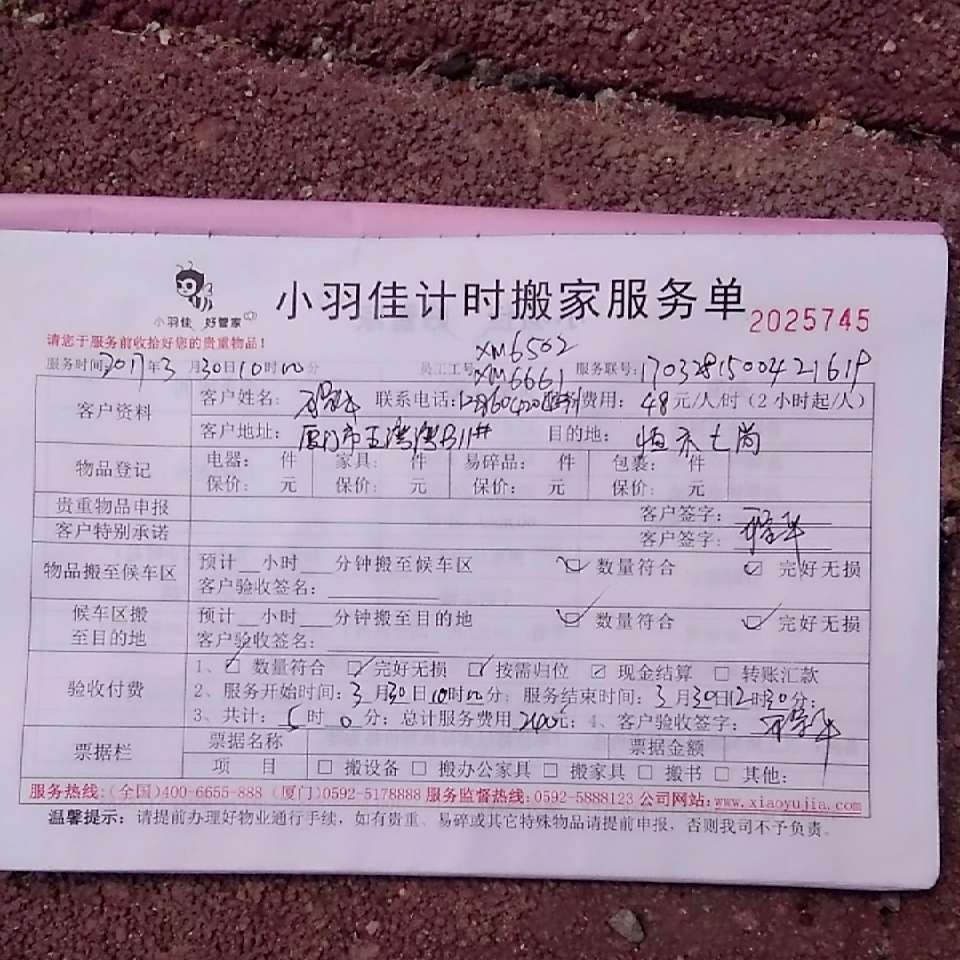 小羽佳 好管家
小羽佳计时搬家服务单 2025745
请您于服务前收拾好您的贵重物品！
XM6502
服务时间:2017年3月30日10时00分 员工工号XM6661 服务联号:17032815004421619
客户资料 客户姓名: 联系电话: 费用: 48元/人/时（2小时起/人）
客户地址: 厦门市五湾 11# 目的地: 恒禾七尚
物品登记 电器: 件 家具: 件 易碎品: 件 包裹: 件
保价: 元 保价: 元 保价: 元 保价: 元
贵重物品申报 客户签字:
客户特别承诺 客户签字:
物品搬至候车区 预计__小时___分钟搬至候车区 ☑ 数量符合 ☑ 完好无损
客户验收签名:
候车区搬至目的地 预计__小时___分钟搬至目的地 ☑ 数量符合 ☑ 完好无损
客户验收签名:
验收付费 1、☑ 数量符合 ☑ 完好无损 ☑ 按需归位 ☑ 现金结算 □ 转账汇款
2、服务开始时间: 3月30日10时00分; 服务结束时间: 3月30日12时30分;
3、共计: 5时0分; 总计服务费用240元; 4、客户验收签字:
票据栏 票据名称 票据金额
项目 □ 搬设备 □ 搬办公家具 □ 搬家具 □ 搬书 □ 其他:
服务热线:(全国)400-6655-888 (厦门)0592-5178888 服务监督热线:0592-5888123 公司网站:www.xiaoyujia.com
温馨提示: 请提前办理好物业通行手续，如有贵重、易碎或其它特殊物品请提前申报，否则我司不予负责。